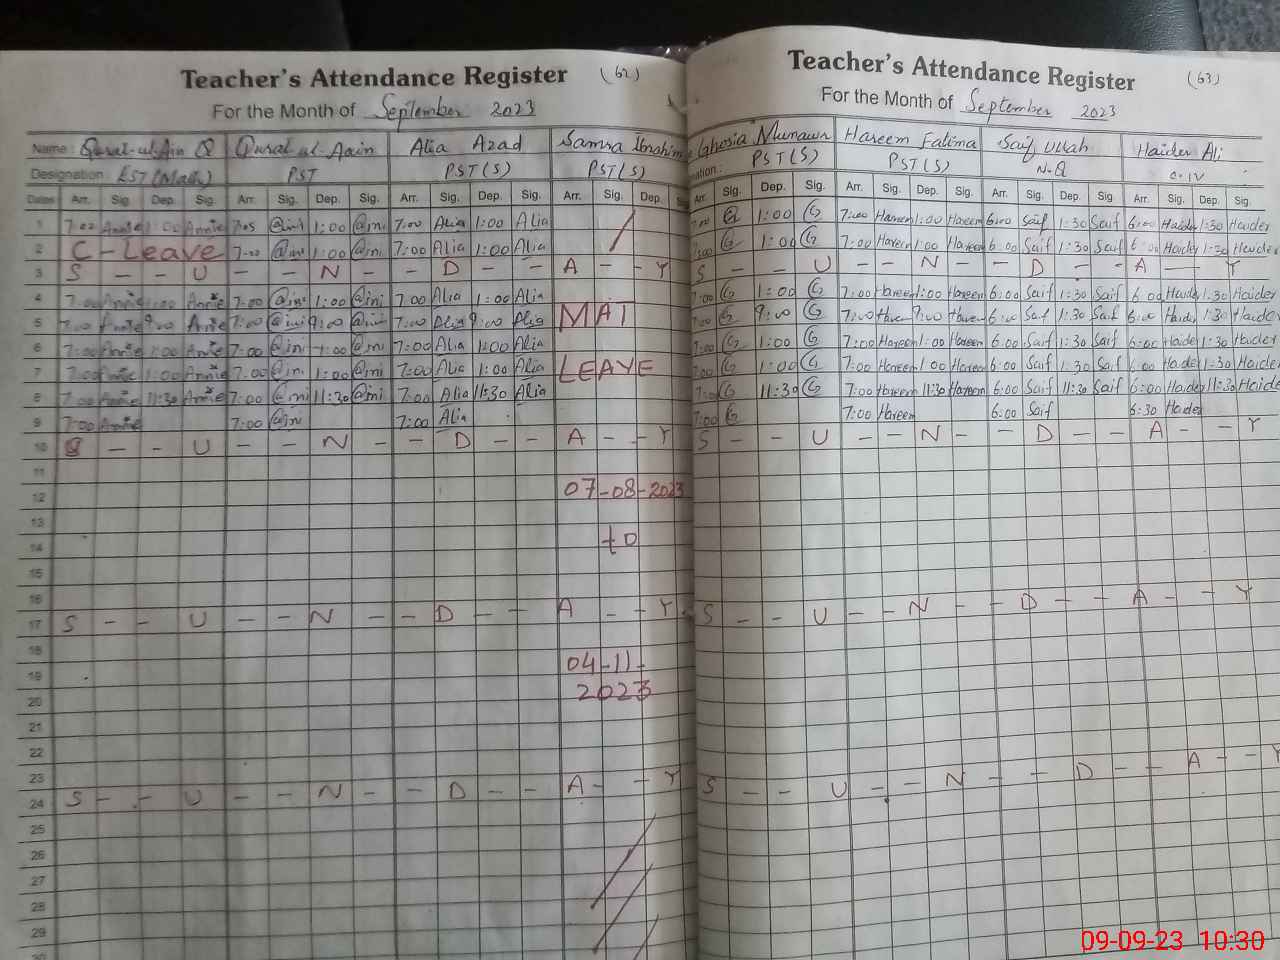 Teacher's Attendance Register (62)
For the Month of September 2023
Name : Qurat-ul-Ain Q Qurat ul Aain Alia Azad Samra Ibrahim
Designation : EST (Math) PST PST (S) PST (S)
Dates Arr. Sig. Dep. Sig. Arr. Sig. Dep. Sig. Arr. Sig. Dep. Sig. Arr. Sig. Dep.
1 Annie 1:00 Annie @ini 1:00 @ini 7:00 Alia 1:00 Alia
2 C-Leave 7:00 @ini 1:00 @ini 7:00 Alia 1:00 Alia
3 S - - U - - N - - D - - A - - Y
4 7:00 Annie 1:00 Annie 7:00 @ini 1:00 @ini 7:00 Alia 1:00 Alia
5 7:00 Annie 9:00 Annie 7:00 @ini 9:00 @ini 7:00 Alia 9:00 Alia MAT
6 7:00 Annie 1:00 Annie 7:00 @ini 1:00 @ini 7:00 Alia 1:00 Alia
7 7:00 Annie 1:00 Annie 7:00 @ini 1:00 @ini 7:00 Alia 1:00 Alia LEAVE
8 7:00 Annie 11:30 Annie 7:00 @ini 11:30 @ini 7:00 Alia 11:30 Alia
9 7:00 Annie 7:00 @ini 7:00 Alia
10 S - - U - - N - - D - - A - - Y
11
12 07-08-2023
13
14 to
15
16
17 S - - U - - N - - D - - A - - Y
18
19 04-11-
20 2023
21
22
23
24 S - - U - - N - - D - - A - - Y
25
26
27
28
29
30
Teacher's Attendance Register (63)
For the Month of September 2023
Ghosia Munawar Hareem Fatima Saif Ullah Haider Ali
nation : PST (S) PST (S) N-Q C-IV
Arr. Sig. Dep. Sig. Arr. Sig. Dep. Sig. Arr. Sig. Dep. Sig. Arr. Sig. Dep. Sig.
7:00 G 1:00 G 7:00 Hareem 1:00 Hareem 6:00 Saif 1:30 Saif 6:00 Haider 1:30 Haider
7:00 G 1:00 G 7:00 Hareem 1:00 Hareem 6:00 Saif 1:30 Saif 6:00 Haider 1:30 Haider
S - - U - - N - - D - - A - Y
7:00 G 1:00 G 7:00 Hareem 1:00 Hareem 6:00 Saif 1:30 Saif 6:00 Haider 1:30 Haider
7:00 G 9:00 G 7:00 Hareem 9:00 Hareem 6:00 Saif 1:30 Saif 6:00 Haider 1:30 Haider
7:00 G 1:00 G 7:00 Hareem 1:00 Hareem 6:00 Saif 1:30 Saif 6:00 Haider 1:30 Haider
7:00 G 1:00 G 7:00 Hareem 1:00 Hareem 6:00 Saif 1:30 Saif 6:00 Haider 1:30 Haider
7:00 G 11:30 G 7:00 Hareem 11:30 Hareem 6:00 Saif 11:30 Saif 6:00 Haider 11:30 Haider
7:00 G 7:00 Hareem 6:00 Saif 6:30 Haider
S - - U - - N - - D - - A - - Y
S - - U - - N - - D - - A - - Y
S - - U - - N - - D - - A - - Y
09-09-23 10:30